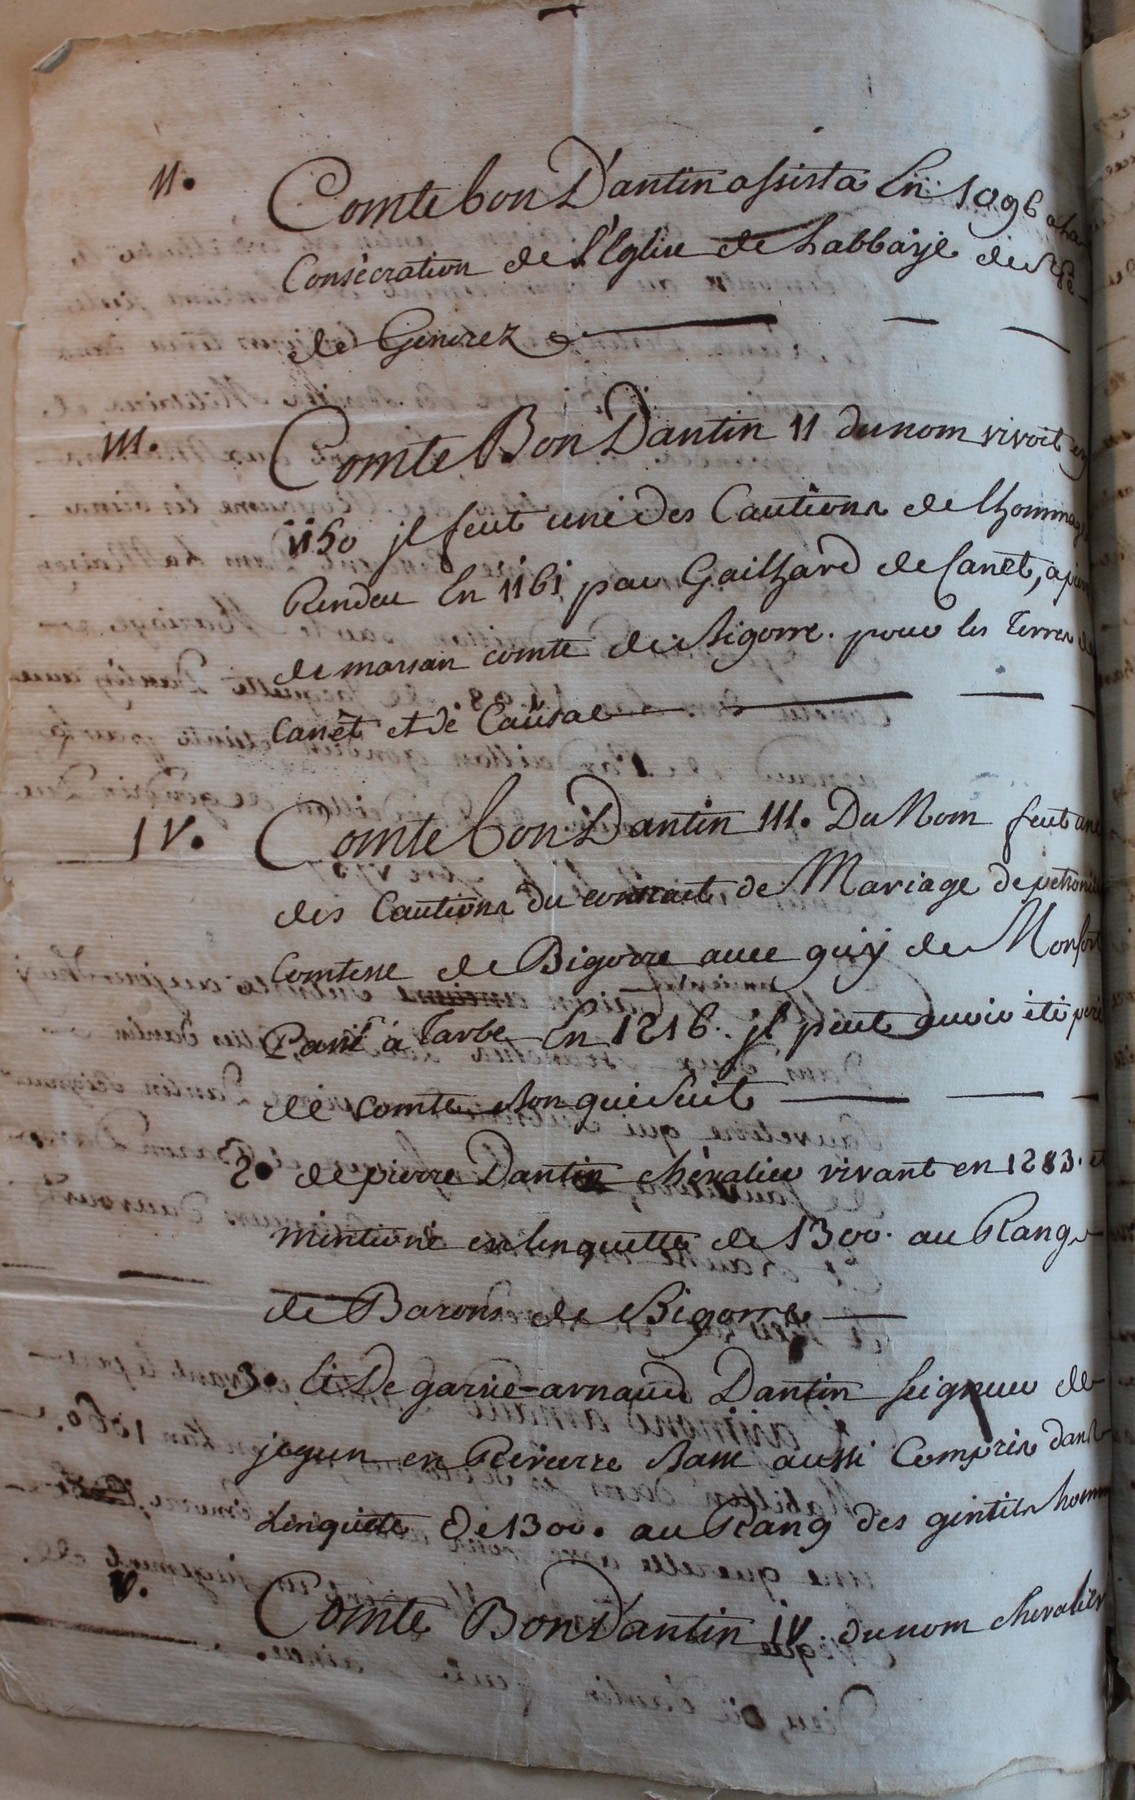 11.
Comte bon D'antin assista En 1096 a la
Consecration de l'Eglise de Labbaye de St pé
de Generez
111.
Comte Bon Dantin 11 du nom vivoit en
1150 jl feut une des Cautions de lhommage
Rendeu En 1161 par Gailhard de Canet, a pierre
de marsan comte de Bigorre. pour les Terres de
Canet et de Caussac
1V.
Comte bon Dantin 111. Du Nom feut une
des Cautions du contrait de Mariage de petronille
Comtesse de Bigorre avec guÿ de Monfort
Passé à Tarbe En 1216. jl peut avoir été pere
de Comte bon qui Suit
2° de pierre Dantin chevalier vivant en 1283. et
mentioné en lenquette de 1300. au Rang
de Barons de Bigorre
3° Et De garcie-arnaud Dantin seigneur de
jegun en Reviere basse aussi Compris dans
Lenquete De 1300. au Rang des gentils homm
V.
Comte Bon Dantin 1V. du nom chevalier